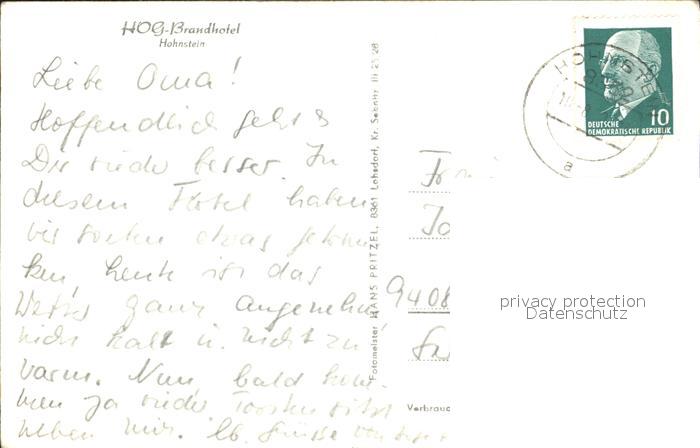 HOG-Brandhotel
Hohnstein
Liebe Oma!
Hoffendlich geht's
Dir wieder besser. In
diesem Hotel haben
wir soeben etwas getrun
ken, heute ist das
Wetter ganz angenehm
nicht kalt u. nicht zu
warm. Nun bald kom-
men ja wieder
neben mir. lb. Grüsse von
Fotomeister HANS PRITZEL, 8361 Lohsdorf, Kr. Sebnitz III 23 28
HOHNSTEIN
a
DEUTSCHE
DEMOKRATISCHE REPUBLIK
10
9408
Verbrauc
privacy protection
Datenschutz